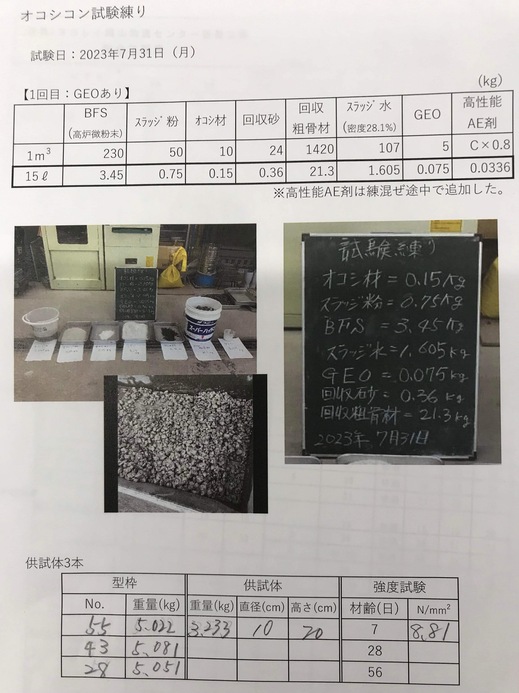 オコシコン試験練り
試験日：2023年7月31日（月）
【1回目：GEOあり】 (kg)
BFS (高炉微粉末) スラッジ粉 オコシ材 回収砂 回収粗骨材 スラッジ水 (密度28.1%) GEO 高性能AE剤
1m³ 230 50 10 24 1420 107 5 C×0.8
15ℓ 3.45 0.75 0.15 0.36 21.3 1.605 0.075 0.0336
※高性能AE剤は練混ぜ途中で追加した。
試験練り
オコシ材=0.15Kg
スラッジ粉=0.75Kg
BFS=3.45Kg
スラッジ水=1,605kg
GEO=0.075kg
回収砂=0.36kg
回収粗骨材=21.3kg
2023年7月31日
供試体3本
型枠 供試体 強度試験
No. 重量(kg) 重量(kg) 直径(cm) 高さ(cm) 材齢(日) N/mm²
55 5.022 3.233 10 20 7 8.81
43 5,081 28
28 5,051 56